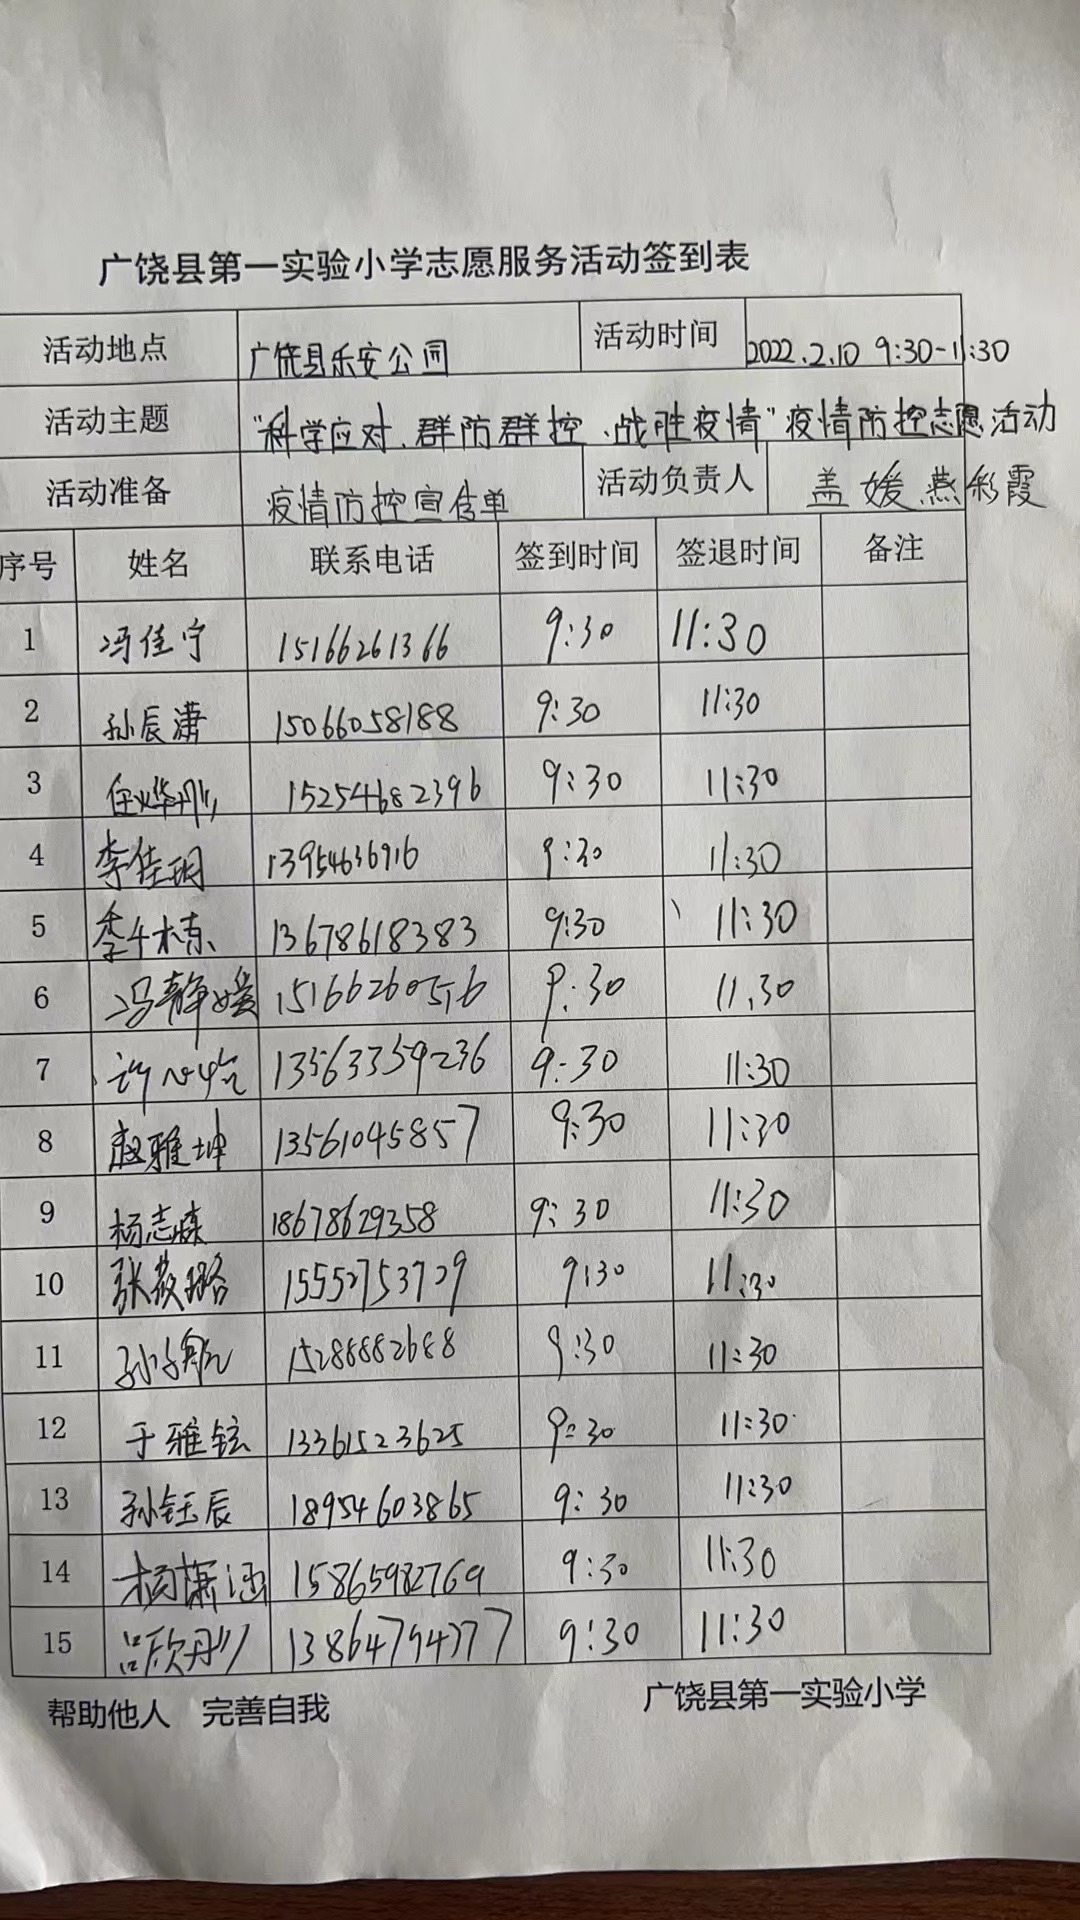 广饶县第一实验小学志愿服务活动签到表
活动地点 广饶县乐安公园 活动时间 2022.2.10 9:30-11:30
活动主题 “科学应对、群防群控、战胜疫情”疫情防控志愿活动
活动准备 疫情防控宣传单 活动负责人 盖媛 燕彩霞
序号 姓名 联系电话 签到时间 签退时间 备注
1 冯佳宁 15166261366 9:30 11:30
2 孙辰潇 15066058188 9:30 11:30
3 任烨彤 15254682396 9:30 11:30
4 李佳玥 13954636916 9:30 11:30
5 李千栋 13678618383 9:30 11:30
6 冯静媛 15166260516 9:30 11:30
7 许 13563359236 9:30 11:30
8 赵雅坤 13561045857 9:30 11:30
9 杨志森 18678629358 9:30 11:30
10 张筱璐 15552753729 9:30 11:30
11 孙子航 15288882688 9:30 11:30
12 于雅铉 13361523625 9:30 11:30
13 孙钰辰 18954603865 9:30 11:30
14 杨潇涵 15865982769 9:30 11:30
15 吕欣彤 13864794777 9:30 11:30
帮助他人 完善自我 广饶县第一实验小学